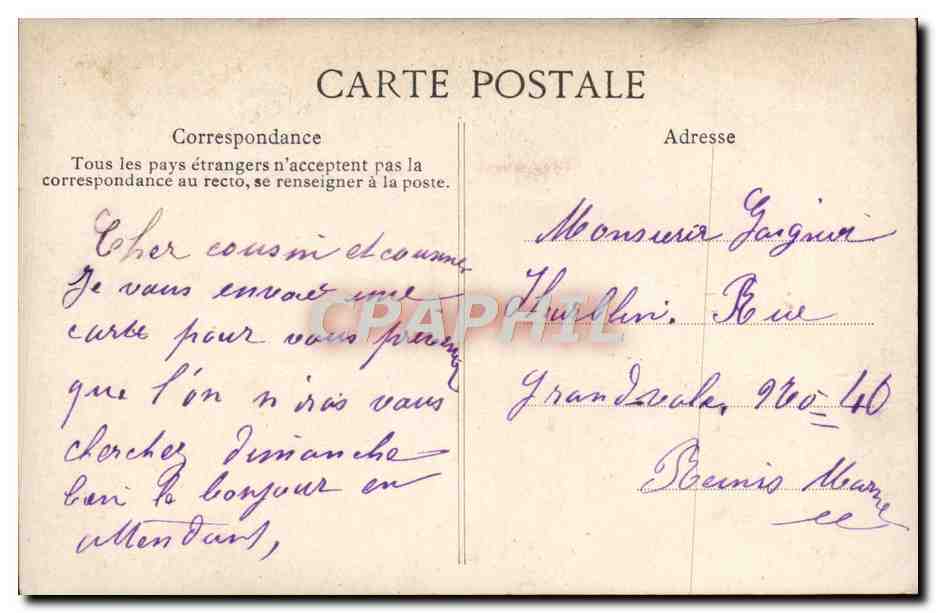 CARTE POSTALE
Correspondance
Tous les pays étrangers n'acceptent pas la
correspondance au recto, se renseigner à la poste.
Cher cousin et cousine
Je vous envoie une
carte pour vous prévenir
que l'on n iras vous
cherchez dimanche
bien le bonjour en
attendant,
Adresse
Monsieur
Rue
Grandvale, No 40
Reims Marne
CPAPHIL